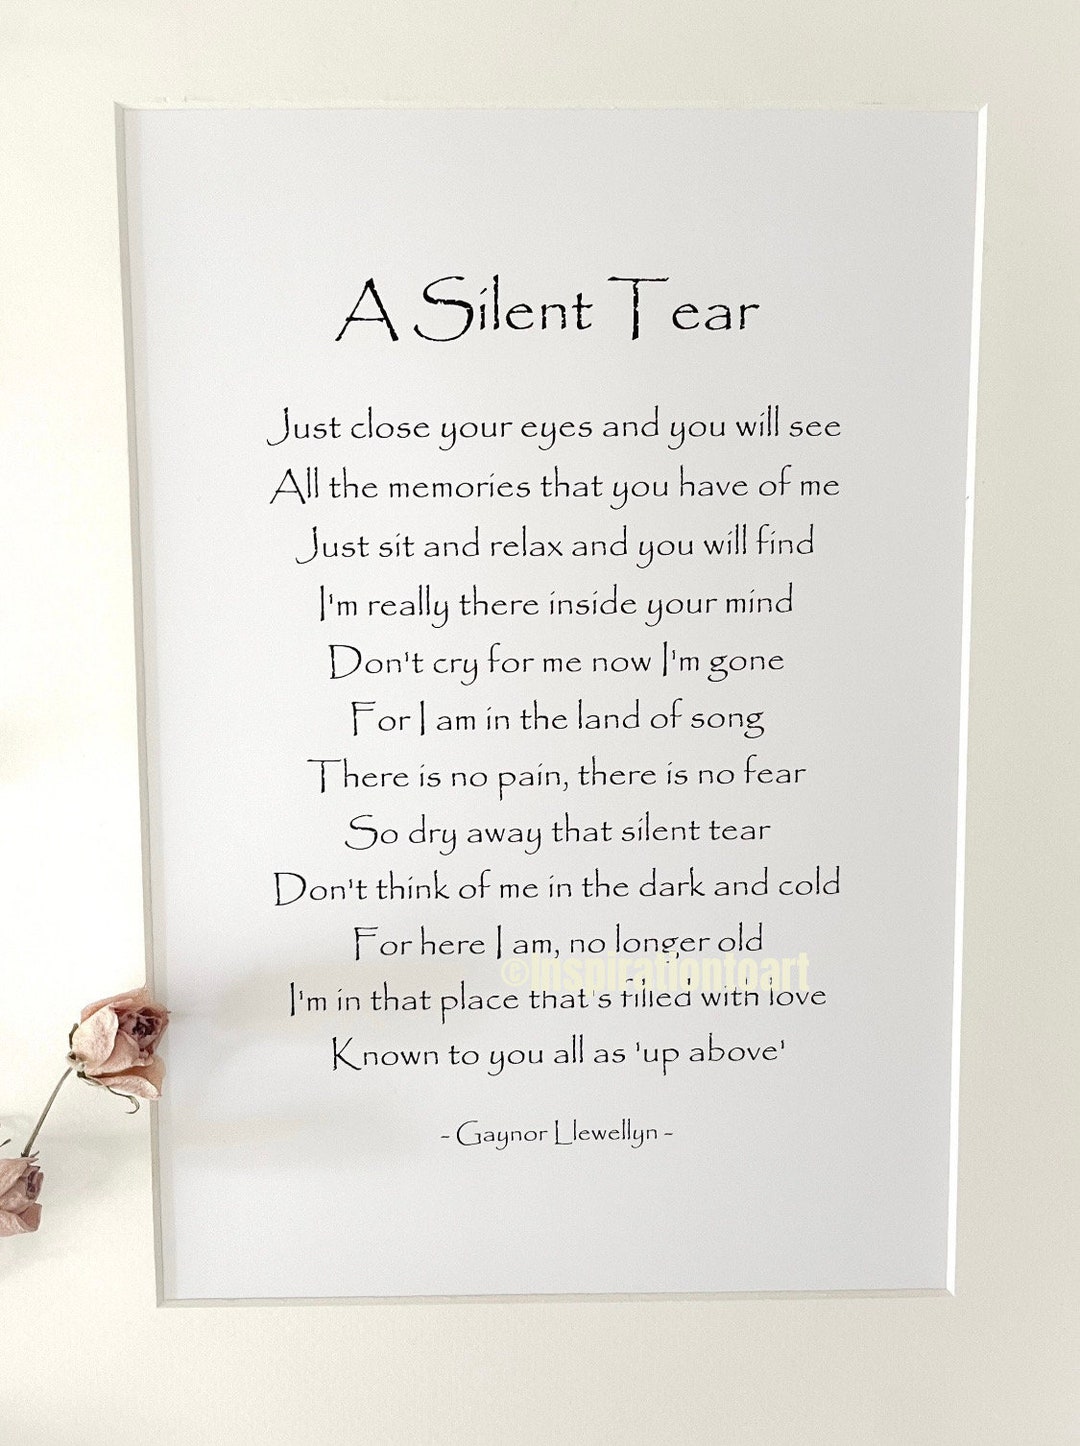 A Silent Tear
Just close your eyes and you will see
All the memories that you have of me
Just sit and relax and you will find
I'm really there inside your mind
Don't cry for me now I'm gone
For I am in the land of song
There is no pain, there is no fear
So dry away that silent tear
Don't think of me in the dark and cold
For here I am, no longer old
©inspirationtoart
I'm in that place that's filled with love
Known to you all as 'up above'
- Gaynor Llewellyn -